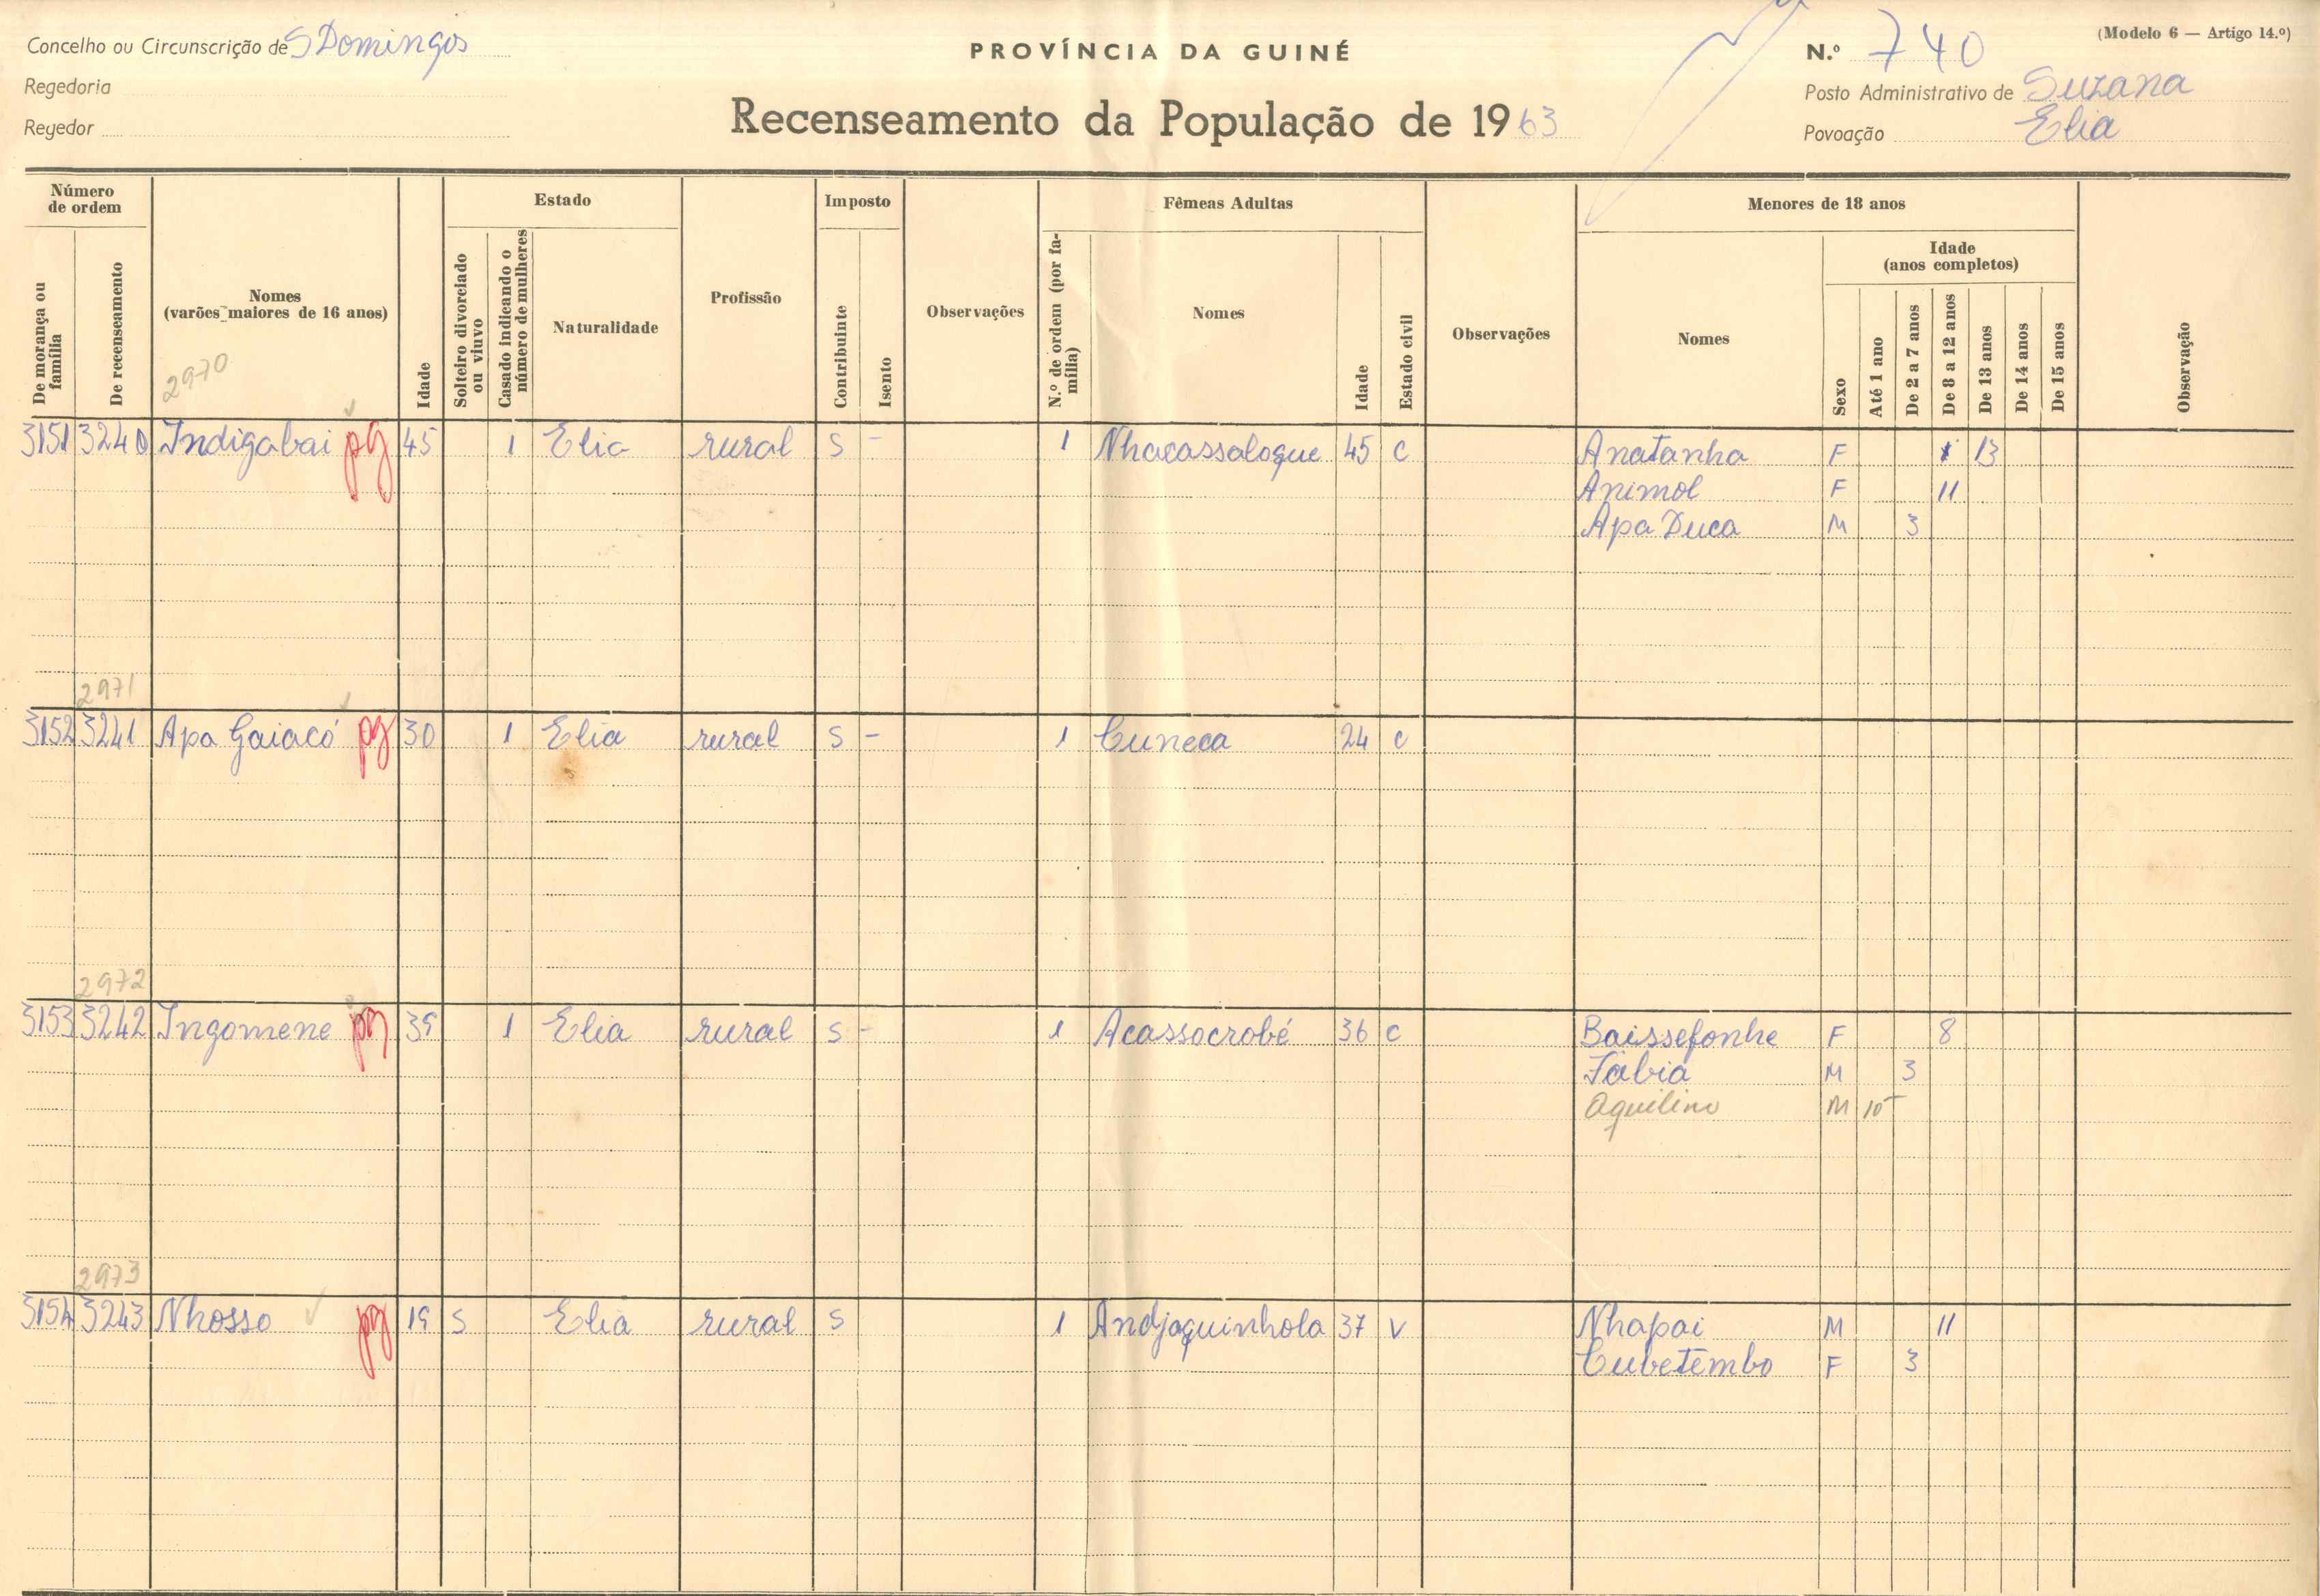 Concelho ou Circunscrição de S Domingos
Regedoria
Regedor
PROVÍNCIA DA GUINÉ
Recenseamento da População de 1963
(Modelo 6 — Artigo 14.º)
N.º 740
Posto Administrativo de Suzana
Povoação Elia
Número de ordem
De morança ou família
De recenseamento
Nomes
(varões maiores de 16 anos)
2970
Idade
Estado
Solteiro divorciado ou viuvo
Casado indicando o número de mulheres
Naturalidade
Profissão
Imposto
Contribuinte
Isento
Observações
Fêmeas Adultas
N.º de ordem (por família)
Nomes
Idade
Estado civil
Observações
Menores de 18 anos
Nomes
Sexo
Idade
(anos completos)
Até 1 ano
De 2 a 7 anos
De 8 a 12 anos
De 13 anos
De 14 anos
De 15 anos
Observação
3151 3240 Indigabai pg 45 1 Elia rural S - 1 Nhacassaloque 45 C Anatanha F 13
Animol F 11
Apa Duca M 3
2971
3152 3241 Apa Gaiacó pg 30 1 Elia rural S - 1 Cuneca 24 C
2972
3153 3242 Ingomene pg 39 1 Elia rural S - 1 Acassocrobé 36 C Baissefonhe F 8
Fábia M 3
Aquilino M 10
2973
3154 3243 Nhosso pg 19 S Elia rural S 1 Andjaquinhola 37 V Nhapai M 11
Cubetembo F 3